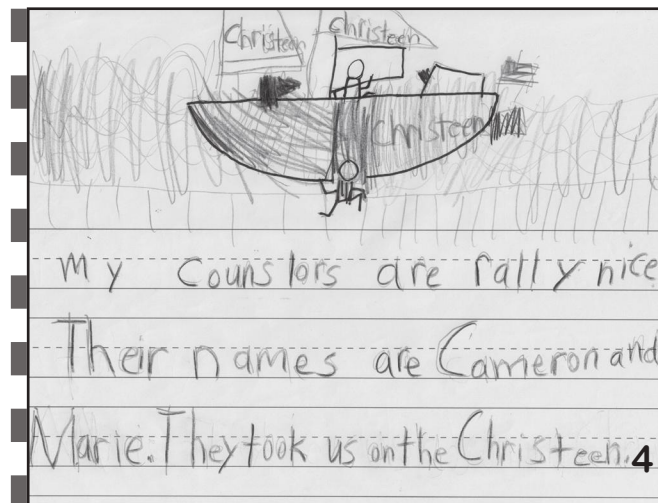 Christeen
Christeen
Christeen
my counslors are rally nice
Their names are Cameron and
Marie. They took us on the Christeen. 4